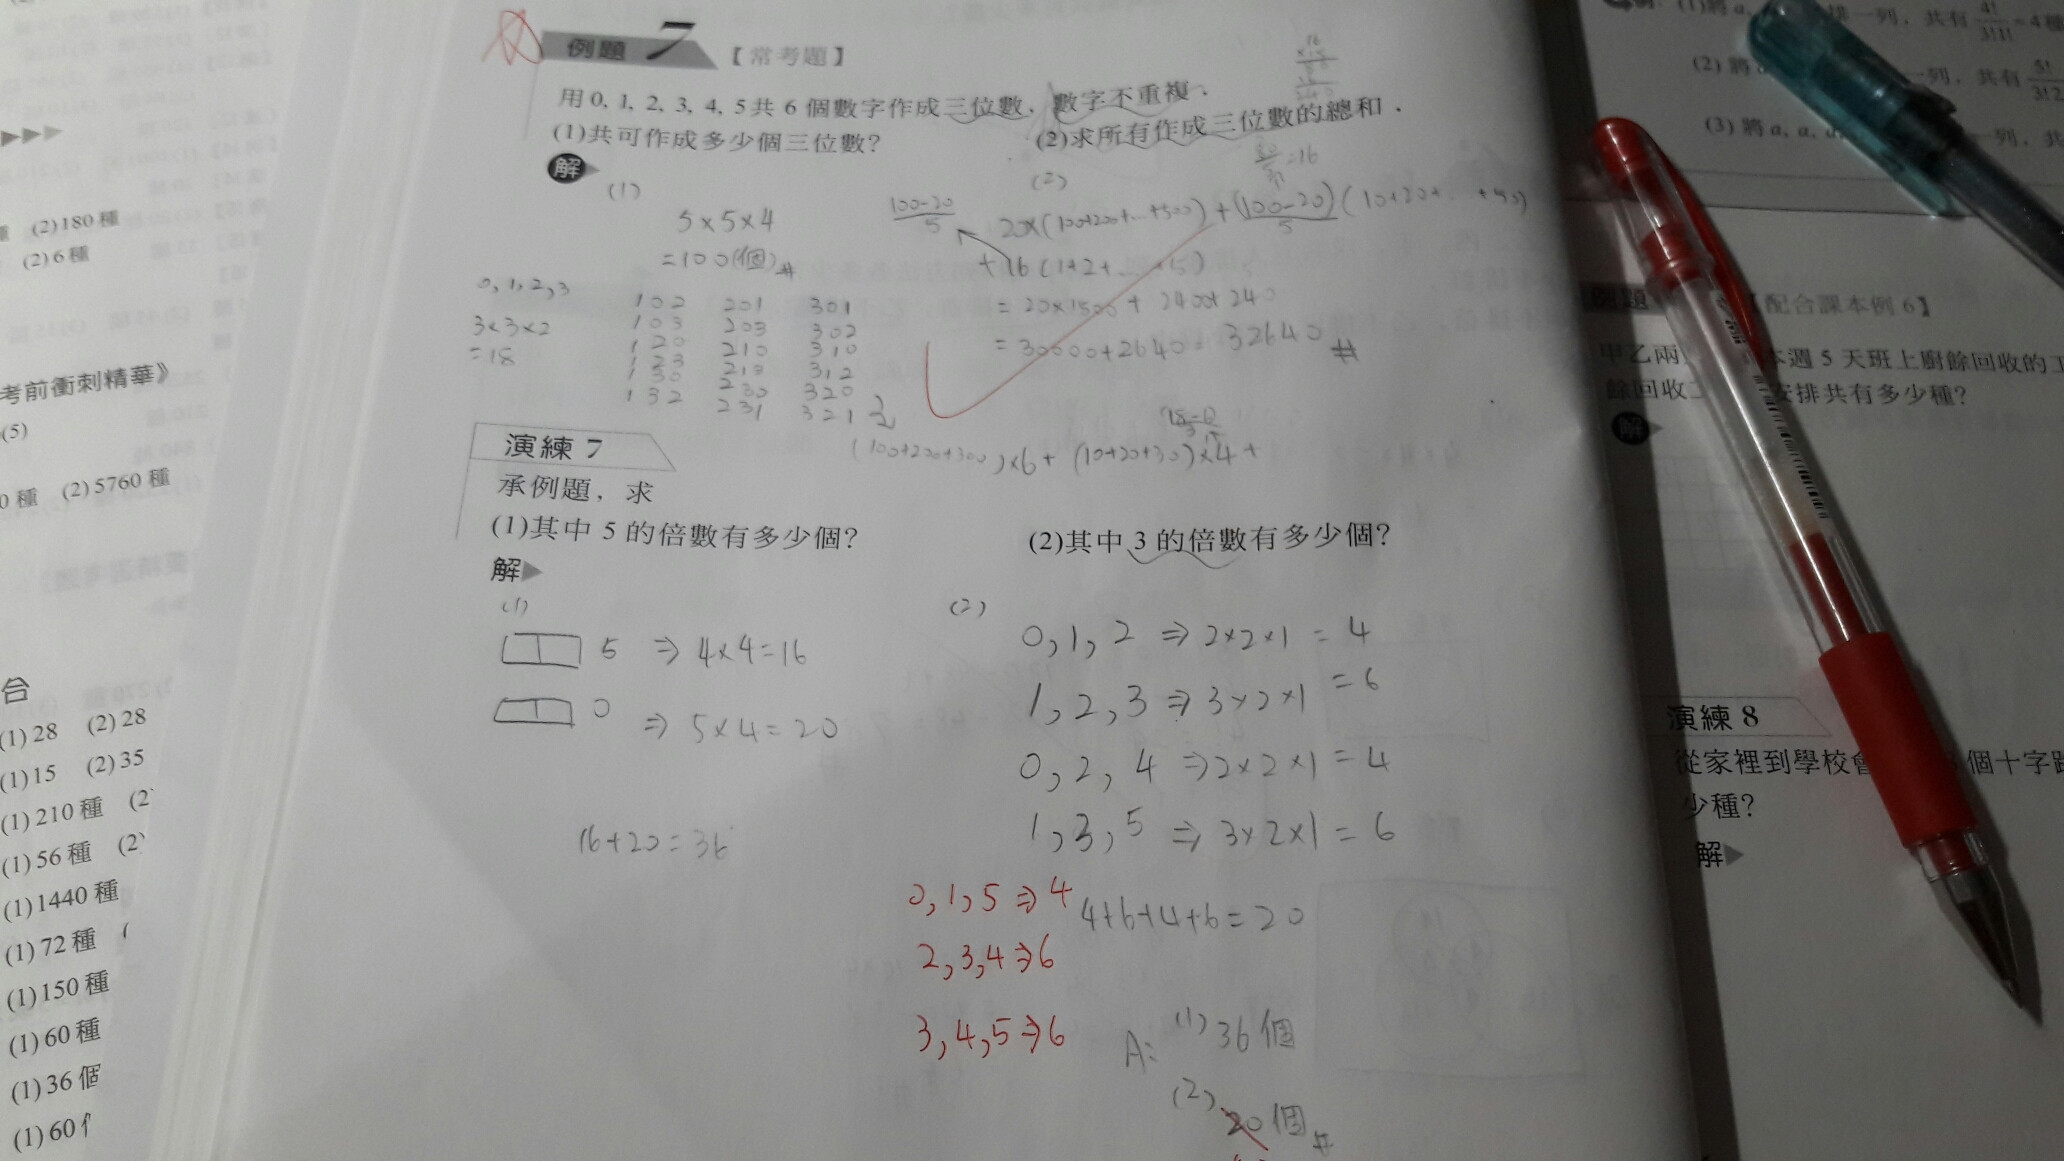 例題 7 【常考題】
用 0, 1, 2, 3, 4, 5 共 6 個數字作成三位數，數字不重複．
(1)共可作成多少個三位數？ (2)求所有作成三位數的總和．
解
(1)
5×5×4
=100(個)#
0,1,2,3
3×3×2
=18
102 201 301
103 203 302
120 210 310
123 213 312
130 230 320
132 231 321
(2)
80/5=16
100-20/5
20×(100+200+…+500)+(100-20)/5(10+20+…+50)
+16(1+2+…+5)
=20×1500+2400+240
=30000+2640=32640#
(100+200+300)×6+(10+20+30)×4+
演練 7
承例題，求
(1)其中 5 的倍數有多少個？ (2)其中 3 的倍數有多少個？
解
(1)
5 ⇒ 4×4=16
0 ⇒ 5×4=20
16+20=36
(2)
0,1,2 ⇒ 2×2×1=4
1,2,3 ⇒ 3×2×1=6
0,2,4 ⇒ 2×2×1=4
1,3,5 ⇒ 3×2×1=6
0,1,5 ⇒ 4
4+6+4+6=20
2,3,4 ⇒ 6
3,4,5 ⇒ 6
A: (1) 36個
(2) 20個#
(2)180 種
(2)6 種
考前衝刺精華》
(5)
0 種 (2)5760 種
合
(1)28 (2)28
(1)15 (2)35
(1)210 種 (2)
(1)56 種 (2)
(1)1440 種
(1)72 種
(1)150 種
(1)60 種
(1)36 個
(1)60
(1)將 a, 排一列，共有 4!/3!1! =4種
(2)將 一列，共有 5!
(3)將 a, a, 一列，共
例題 【配合課本例 6】
甲乙兩 本週 5 天班上廚餘回收的工
餘回收 安排共有多少種？
解
演練 8
從家裡到學校會 個十字路
少種？
解